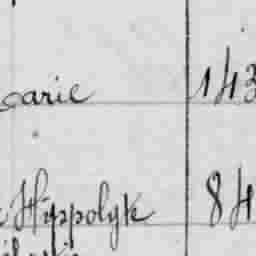 carie 143
Hippolyte 84